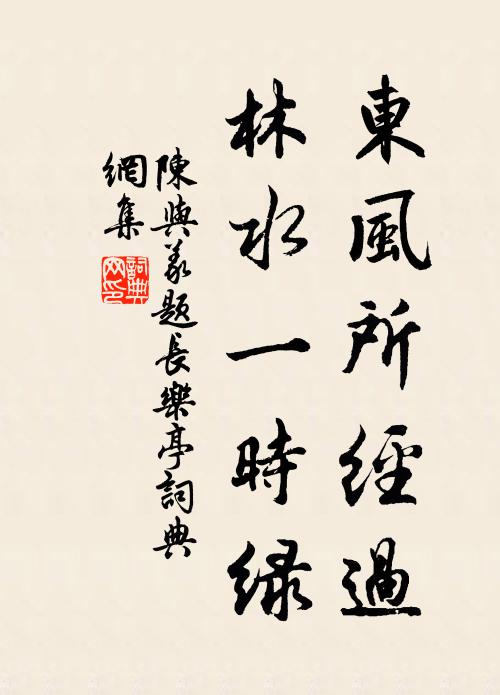 東風所經過
林水一時緑
陳與義題長樂亭詞典
網集
詞典網印